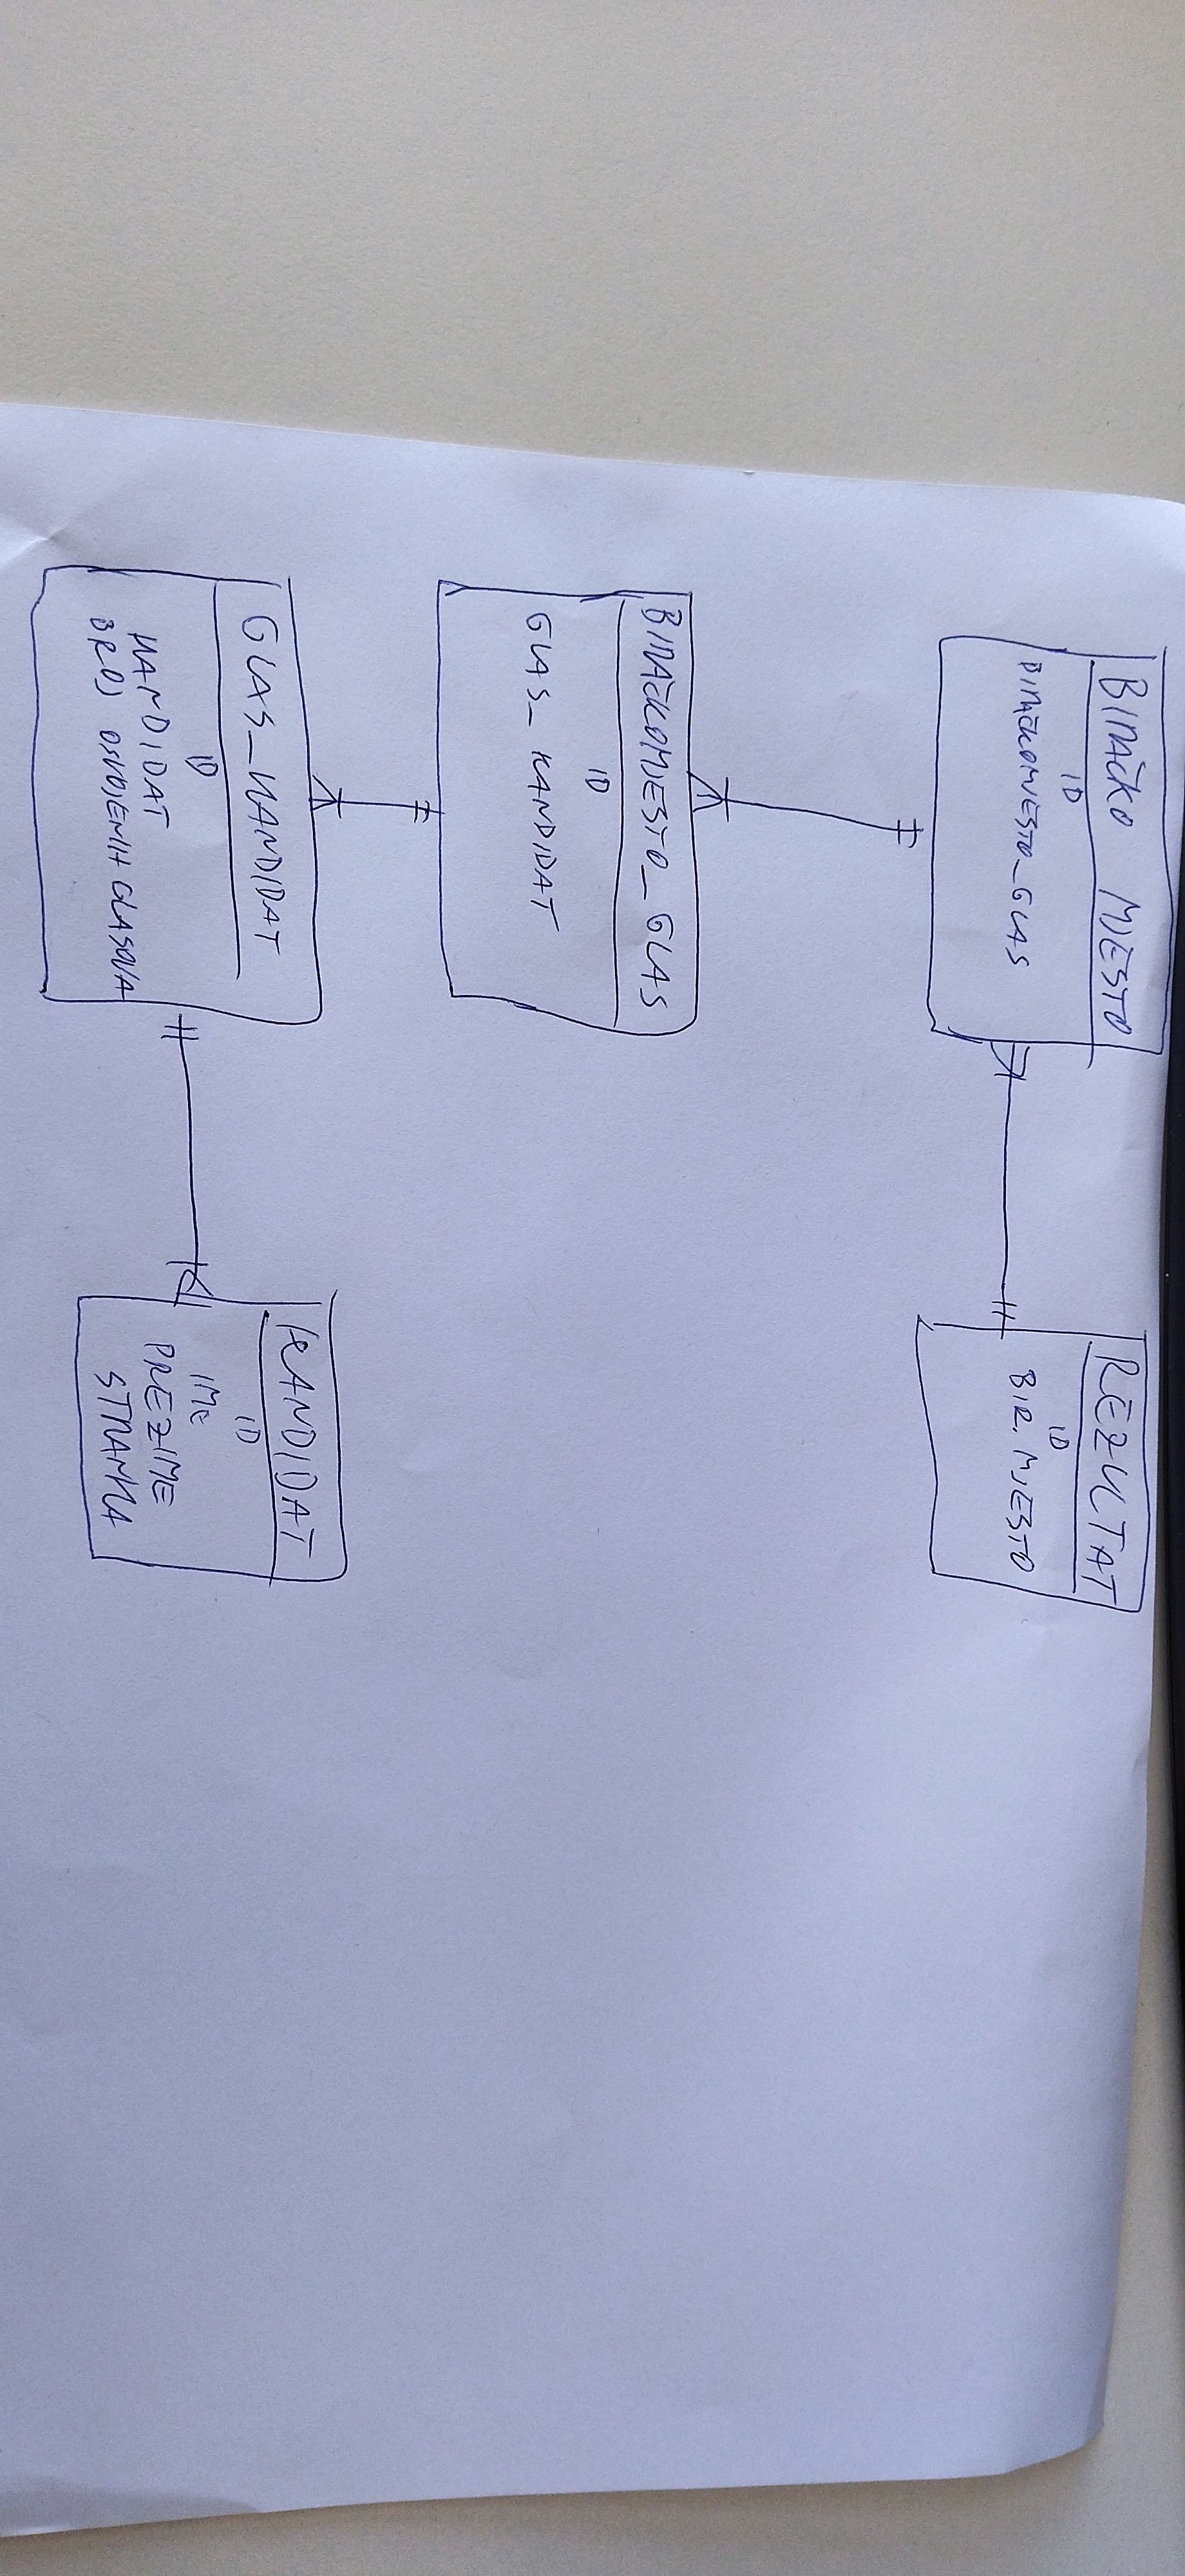 BIRAČKO MJESTO
ID
BIRAČKOMJESTO_GLAS
REZULTAT
ID
BIR. MJESTO
BIRAČKOMJESTO_GLAS
ID
GLAS_KANDIDAT
GLAS_KANDIDAT
ID
KANDIDAT
BROJ OSVOJENIH GLASOVA
KANDIDAT
ID
IME
PREZIME
STRANKA